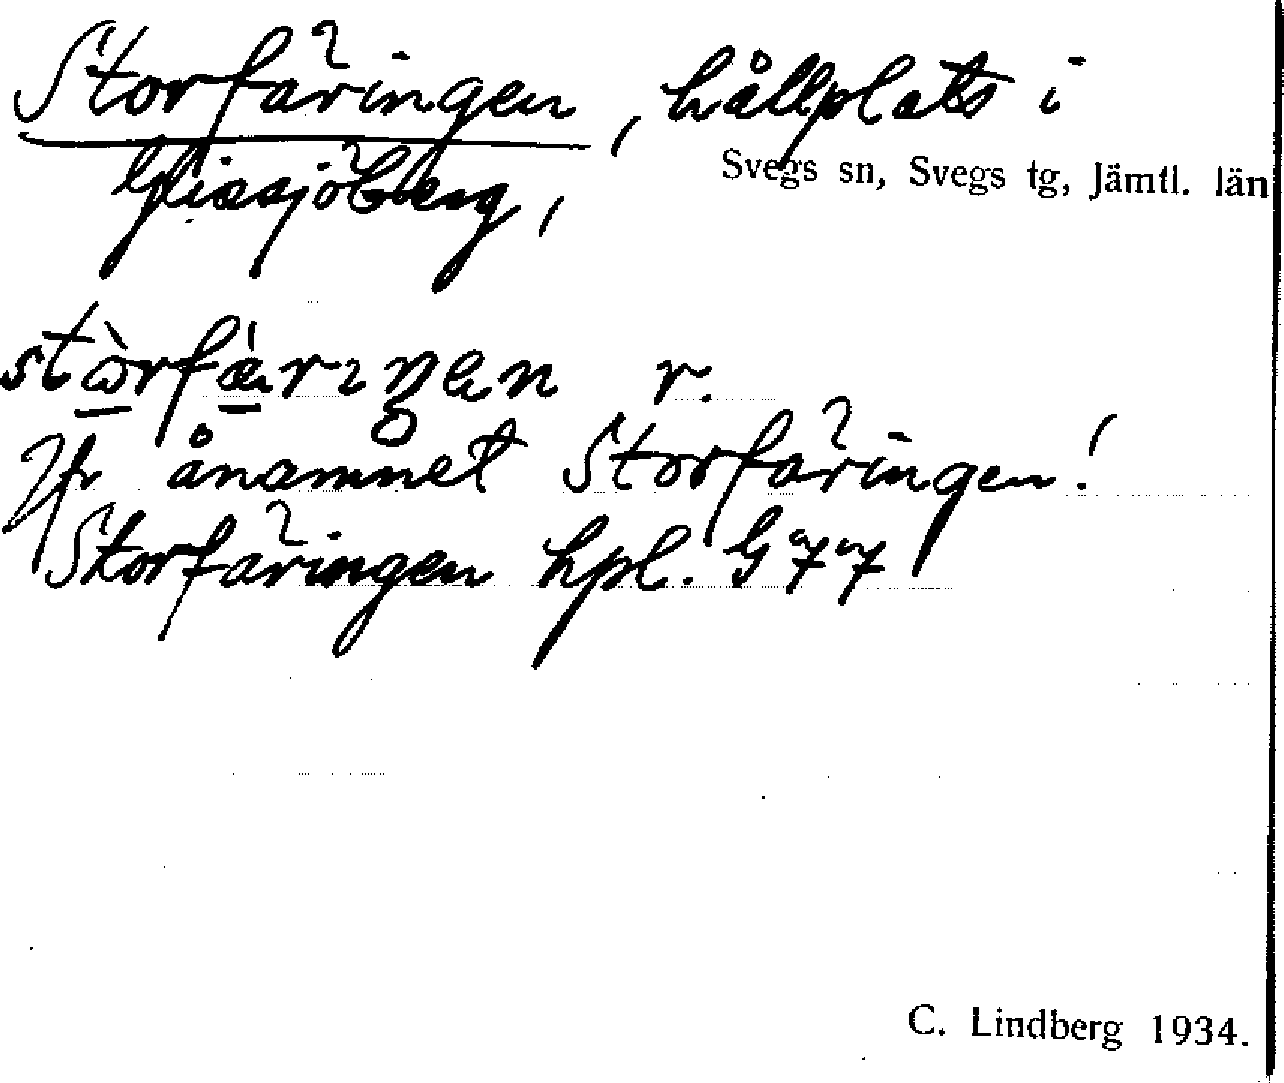 Storfäringen, hållplats i
Glissjöberg,
Svegs sn, Svegs tg, Jämtl. län
r.
Jfr ånamnet Storfäringen!
Storfäringen hpl. G 77
C. Lindberg 1934.